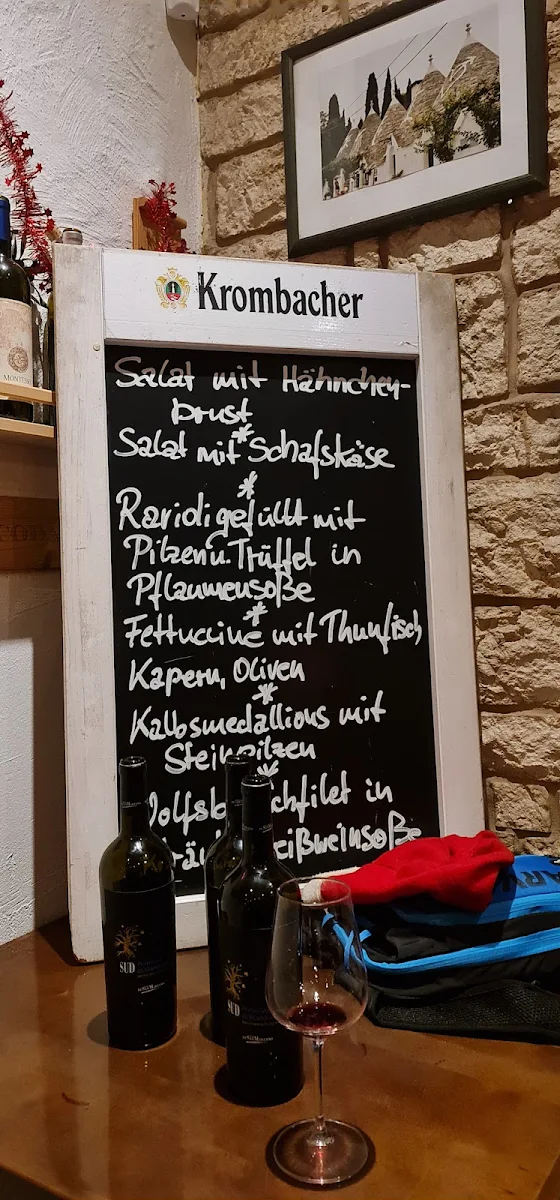 Krombacher
Salat mit Hähnchen-
brust
*
Salat mit Schafskäse
*
Raridi gefüllt mit
Pilzen u. Trüffel in
Pflaumensoße
*
Fettuccine mit Thunfisch
Kapern, Oliven
*
Kalbsmedallions mit
Steinpilzen
*
in
SUD
SUD